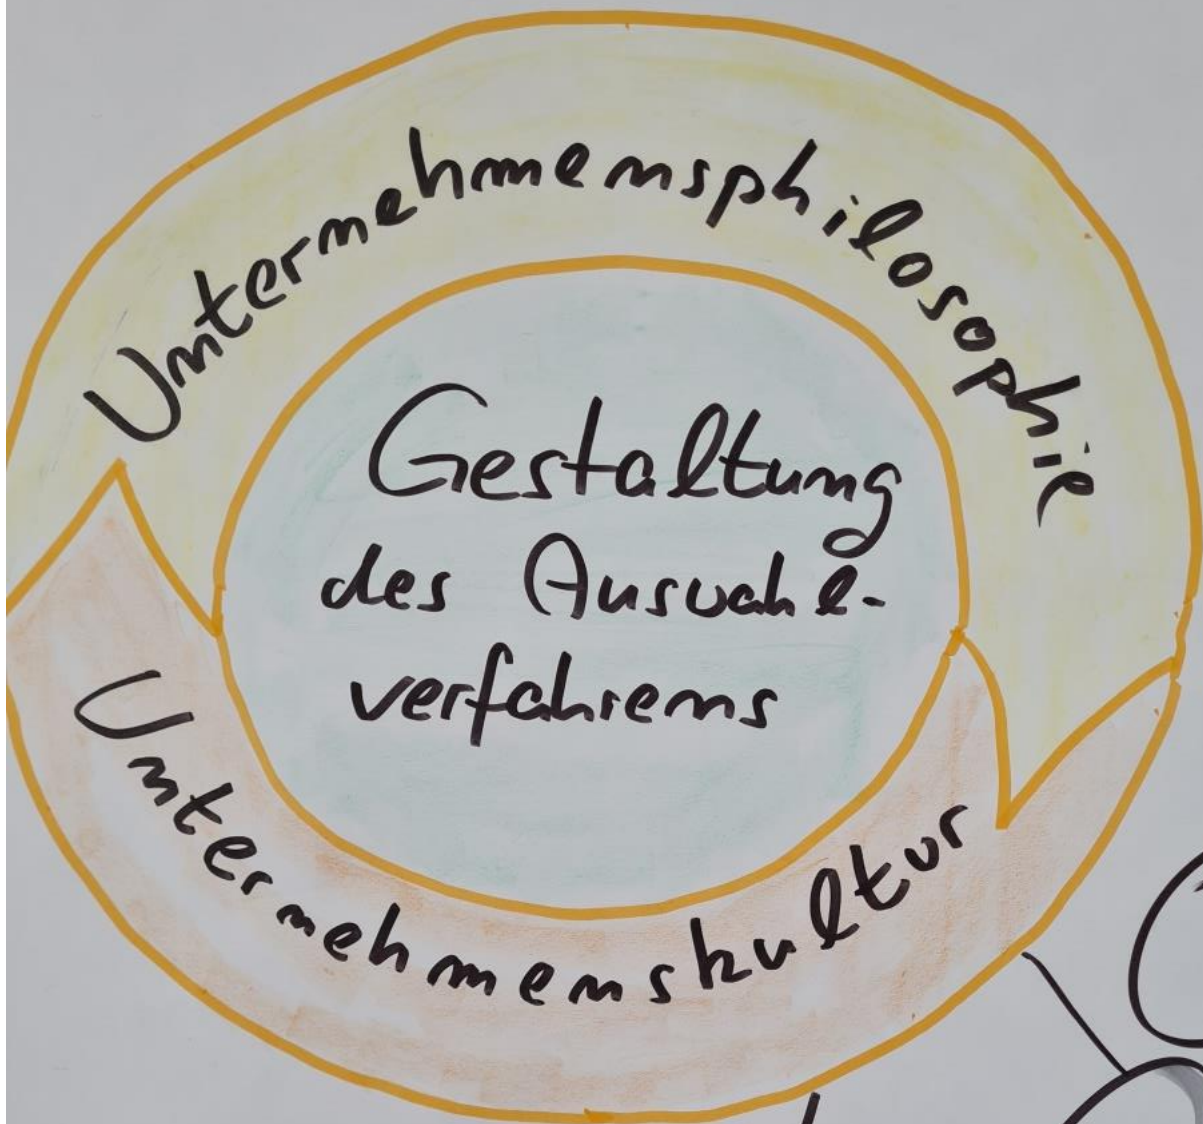 Unternehmensphilosophie
Gestaltung
des Auswahl-
verfahrens
Unternehmenskultur